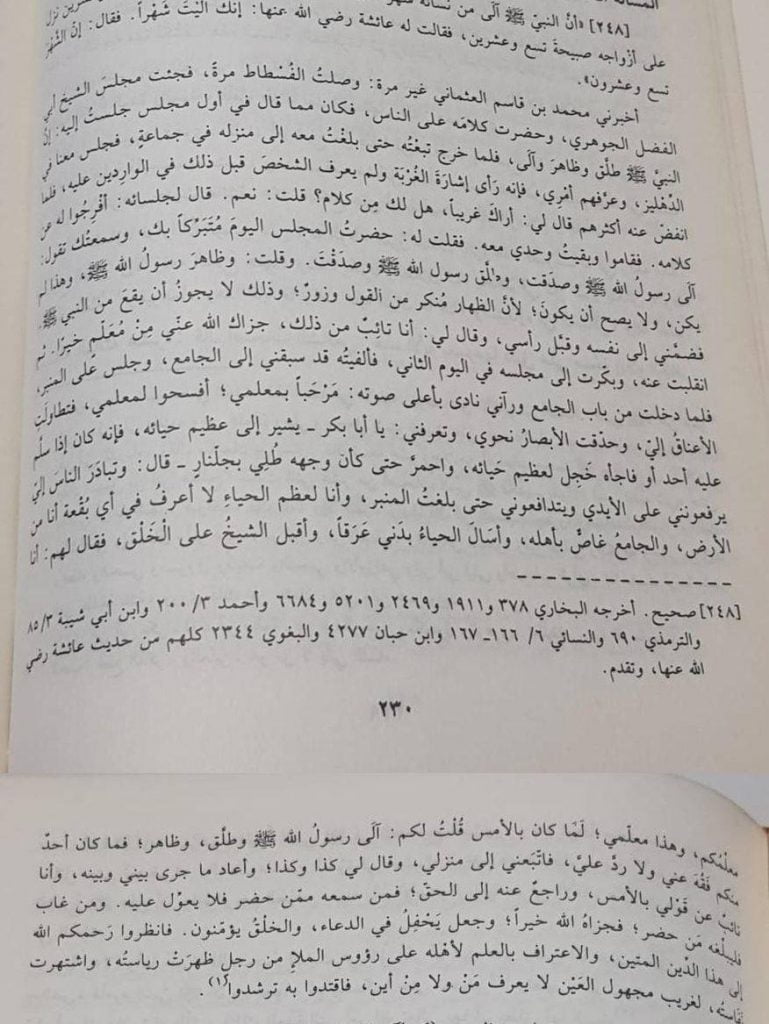 المسألة
[٢٤٨] «أنَّ النبيّ ﷺ آلَى من نسائه شهر
على أزْواجه صبيحةَ تسع وعشرين، فقالت له عائشة رضي الله عنها: إنك آلَيْتَ شَهْراً. فقال: إنّ الشَّهْرَ
تسع وعشرون».
أخبرني محمد بن قاسم العثماني غير مرة: وصلتُ الفُسْطاط مرةً، فجئت مجلسَ الشيخ أبي
الفضل الجوهري، وحضرت كلامَه على الناس، فكان مما قال في أول مجلس جلستُ إليه: إنَّ
النبيَّ ﷺ طلَّق وظاهَرَ وآلَى، فلما خرج تبعْتُه حتى بلغْتُ معه إلى منزله في جماعةٍ، فجلس معنا في
الدِّهْليز، وعرَّفهم أمْري، فإنه رَأى إشارَةَ الغُرْبَة ولم يعرف الشخصَ قبل ذلك في الوارِدين عليه، فلما
انفضَّ عنه أكثرهم قال لي: أراكَ غريباً، هل لك مِن كلام؟ قلت: نعم. قال لجلسائه: أفْرِجُوا له عن
كلامه. فقاموا وبقيتُ وحدي معه. فقلت له: حضرتُ المجلس اليومَ مُتَبَرِّكاً بك، وسمعتُك تقول:
آلَى رسولُ الله ﷺ وصدَقت، وطلَّق رسول الله ﷺ وصدَقْتَ. وقلت: وظاهرَ رسولُ الله ﷺ، وهذا لم
يكن، ولا يصح أن يكونَ؛ لأنَّ الظهار مُنكر من القول وزورٌ؛ وذلك لا يجوزُ أن يقعَ من النبي ﷺ.
فضمَّني إلى نفسه وقبَّل رأسي، وقال لي: أنا تائِبٌ من ذلك، جزاك الله عنّي مِنْ مُعَلّم خيرًا. ثم
انقلبت عنه، وبكّرت إلى مجلسه في اليوم الثاني، فألفيتُه قد سبقني إلى الجامع، وجلس على المنبر،
فلما دخلت من باب الجامع ورآني نادى بأعلى صوته: مَرْحَباً بمعلمي؛ أفسحوا لمعلمي، فتطاولَتِ
الأعناقُ إليَّ، وحدّقت الأبصارُ نحوي، وتعرفني: يا أبا بكر ـ يشير إلى عظيم حيائه، فإنه كان إذا سلَّم
عليه أحد أو فاجأه خَجِل لعظيم حَيائه، واحمرَّ حتى كأن وجهه طُلِي بجلّنارٍ ـ قال: وتبادَرَ الناسُ إليَّ
يرفعونني على الأيدي ويتدافعوني حتى بلغتُ المنبر، وأنا لعظم الحياءِ لا أعرفُ في أي بُقْعة أنا من
الأرض، والجامعُ غاصٌّ بأهله، وأسَالَ الحياءُ بدَني عَرَقاً، وأقبل الشيخُ على الْخَلْق، فقال لهم: أنا
[٢٤٨] صحيح. أخرجه البخاري ٣٧٨ و١٩١١ و٢٤٦٩ و٥٢٠١ و٦٦٨٤ وأحمد ٣/ ٢٠٠ وابن أبي شيبة ٣/ ٨٥
والترمذي ٦٩٠ والنسائي ٦/ ١٦٦ـ ١٦٧ وابن حبان ٤٢٧٧ والبغوي ٢٣٤٤ كلهم من حديث عائشة رضي
الله عنها، وتقدم.
٢٣٠
معلّمُكم، وهذا معلّمي؛ لَمَّا كان بالأمس قُلْتُ لكم: آلَى رسولُ الله ﷺ وطلَّق، وظاهر؛ فما كان أحدٌ
منكم فَقُهَ عني ولا ردَّ عليَّ، فاتَّبَعني إلى منزلي، وقال لي كذا وكذا؛ وأعاد ما جرى بيني وبينه، وأنا
تائبٌ عن قَوْلي بالأمس، وراجعٌ عنه إلى الحقّ؛ فمن سمعه ممّن حضر فلا يعوّل عليه. ومن غاب
فليبلّغه مَن حضر؛ فجزاهُ الله خيراً؛ وجعل يَحْفِلُ في الدعاء، والخلْقُ يؤمّنون. فانظروا رَحمكم الله
إلى هذا الدِّين المتين، والاعتراف بالعلم لأهْله على رؤوس الملإ من رجلٍ ظهرَتْ رياستُه، واشتهرت
نَفاسَتُه، لغريب مجهول العَيْن لا يعرف مَنْ ولا مِنْ أين، فاقتدوا به ترشدوا(١).